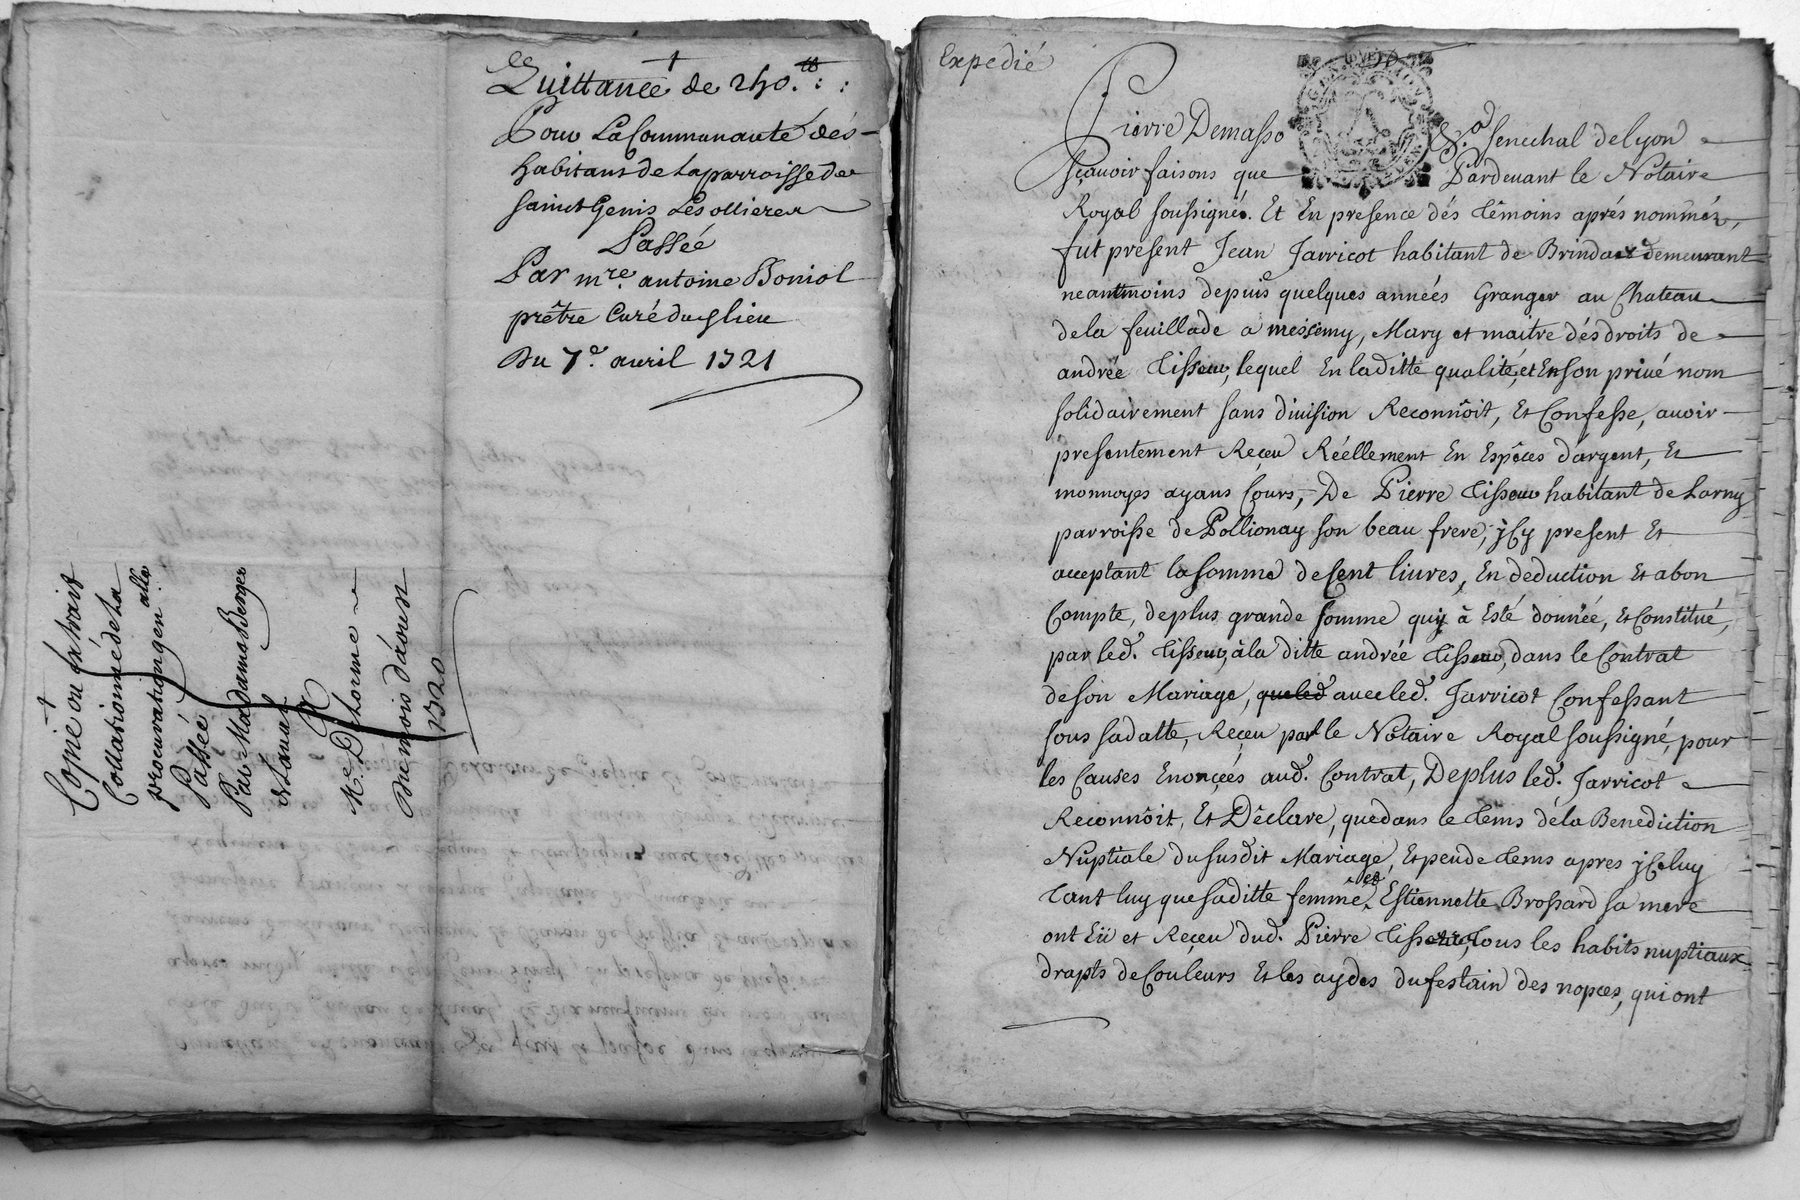 Quittance de 240.tt : :
Pour La Communauté des
habitans de La parroisse de
saint Genis Les ollieres
Passée
Par m.re antoine Boniol
prêtre Curé dud lieu
Du 7.e avril 1721
Copie ou Extrait
Collationné de La
procuration gen.alle
Passée
Par Madame Berger
De Laval
A
M.e Delorme
Du mois d'aoust
1720
Expedié
Pierre Demasso S.r Senechal de Lyon
sçavoir faisons que Pardevant le Notaire
Royal soussigné. Et En presence dés têmoins aprés nommés,
fut present Jean Jarricot habitant de Brindas demeurant
neantmoins depuis quelques années Granger au Chateau
de la feuillade a messemy, Mary et maitre dés droits de
andrée Tisseur, lequel En laditte qualité, et En son privé nom
solidairement sans division Reconnôit, Et Confesse, avoir
presentement Reçeu Réellement En Espêces d'argent, Et
monnoyes ayans Cours, De Pierre Tisseur habitant de Larny
parroisse de Pollionay son beau frere, jCy present Et
acceptant la somme de Cent livres, En deduction Et abon
Compte, de plus grande somme quy à Esté donnée, Et Constitué,
par led. Tisseur, à la ditte andrée Tisseur, dans le Contrat
de son Mariage, queled avec led. Jarricot Confessant
sous sa datte, Reçeu par le Notaire Royal soussigné, pour
les Causes Enonçéés aud. Contrat, De plus led. Jarricot
Reconnôit, Et Dêclare, que dans le tems dé la Benediction
Nuptiale du susdit Mariage, Et peu de tems apres jCeluy
tant luy que saditte femme, et Estiennette Brossard sa mere
ont Eü et Reçeu dud. Pierre Tisseur, tous les habits nuptiaux
drapts de Couleurs Et les aydes du festain des nopces, qui ont